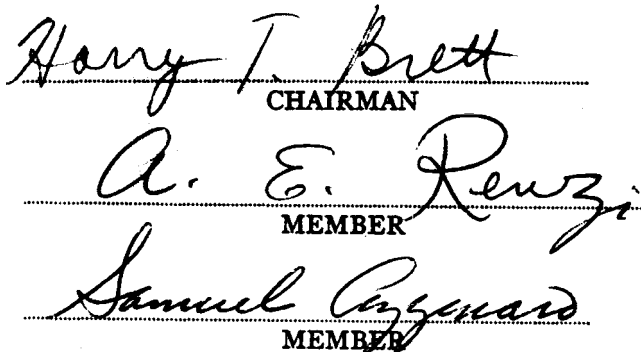 Harry T. Brett
CHAIRMAN
A. E. Renzi
MEMBER
Samuel Azzinaro
MEMBER